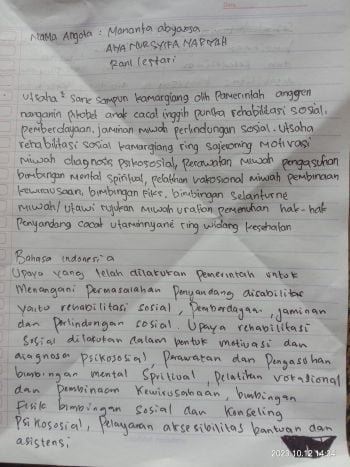 Nama Anggota : Mananta abyassa
AYA NURSYIFA MARYAH
Rani lestari
Utsaha² sane sampun kamargiang olih Pamerintah anggen
nanganin pikobet anak cacat inggih punika rehabilitasi sosial,
pemberdayaan, jaminan miwah perlindungan sosial. Utsaha
rehabilitasi sosial kamargiang ring sajeroning Motivasi
miwah diagnosis psikososial, perawatan miwah pengasuhan
bimbingan mental spiritual, pelatihan vokasional miwah pembinaan
kewirausaan, bimbingan fisik, bimbingan selanturne
miwah/utawi rujukan miwah uratian pemenuhan hak-hak
Penyandang cacat utaminnyane ring widang kesehatan
Bahasa indonesia
Upaya yang telah dilakukan pemerintah untuk
Menangani Permasalahan Penyandang disabilitas
yaitu rehabilitasi sosial, Pemberdayaan, jaminan
dan Perlindongan sosial. Upaya rehabilitasi
Sosial dilakukan dalam bentuk motivasi dan
diagnosa psikososial, Perawatan dan Pengasuhan
bimbingan mental Spritual, Pelatihan vokasional
dan Pembinaan Kewirusahaan, bimbingan
Fisik bimbingan Sosial dan Konseling
Psikososial, Pelayanan aksesibilitas bantuan dan
asistensi
2023.10.12 14:34